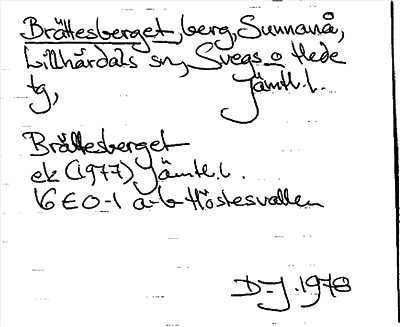 Brättesberget, berg, Sunnanå,
Lillhärdals sn, Svegs o Hede
tg, Jämtl. l.
Brättesberget
ek (1977) Jämtl. l.
16 E 0-1 a-b Höstesvallen
D-J. 1978